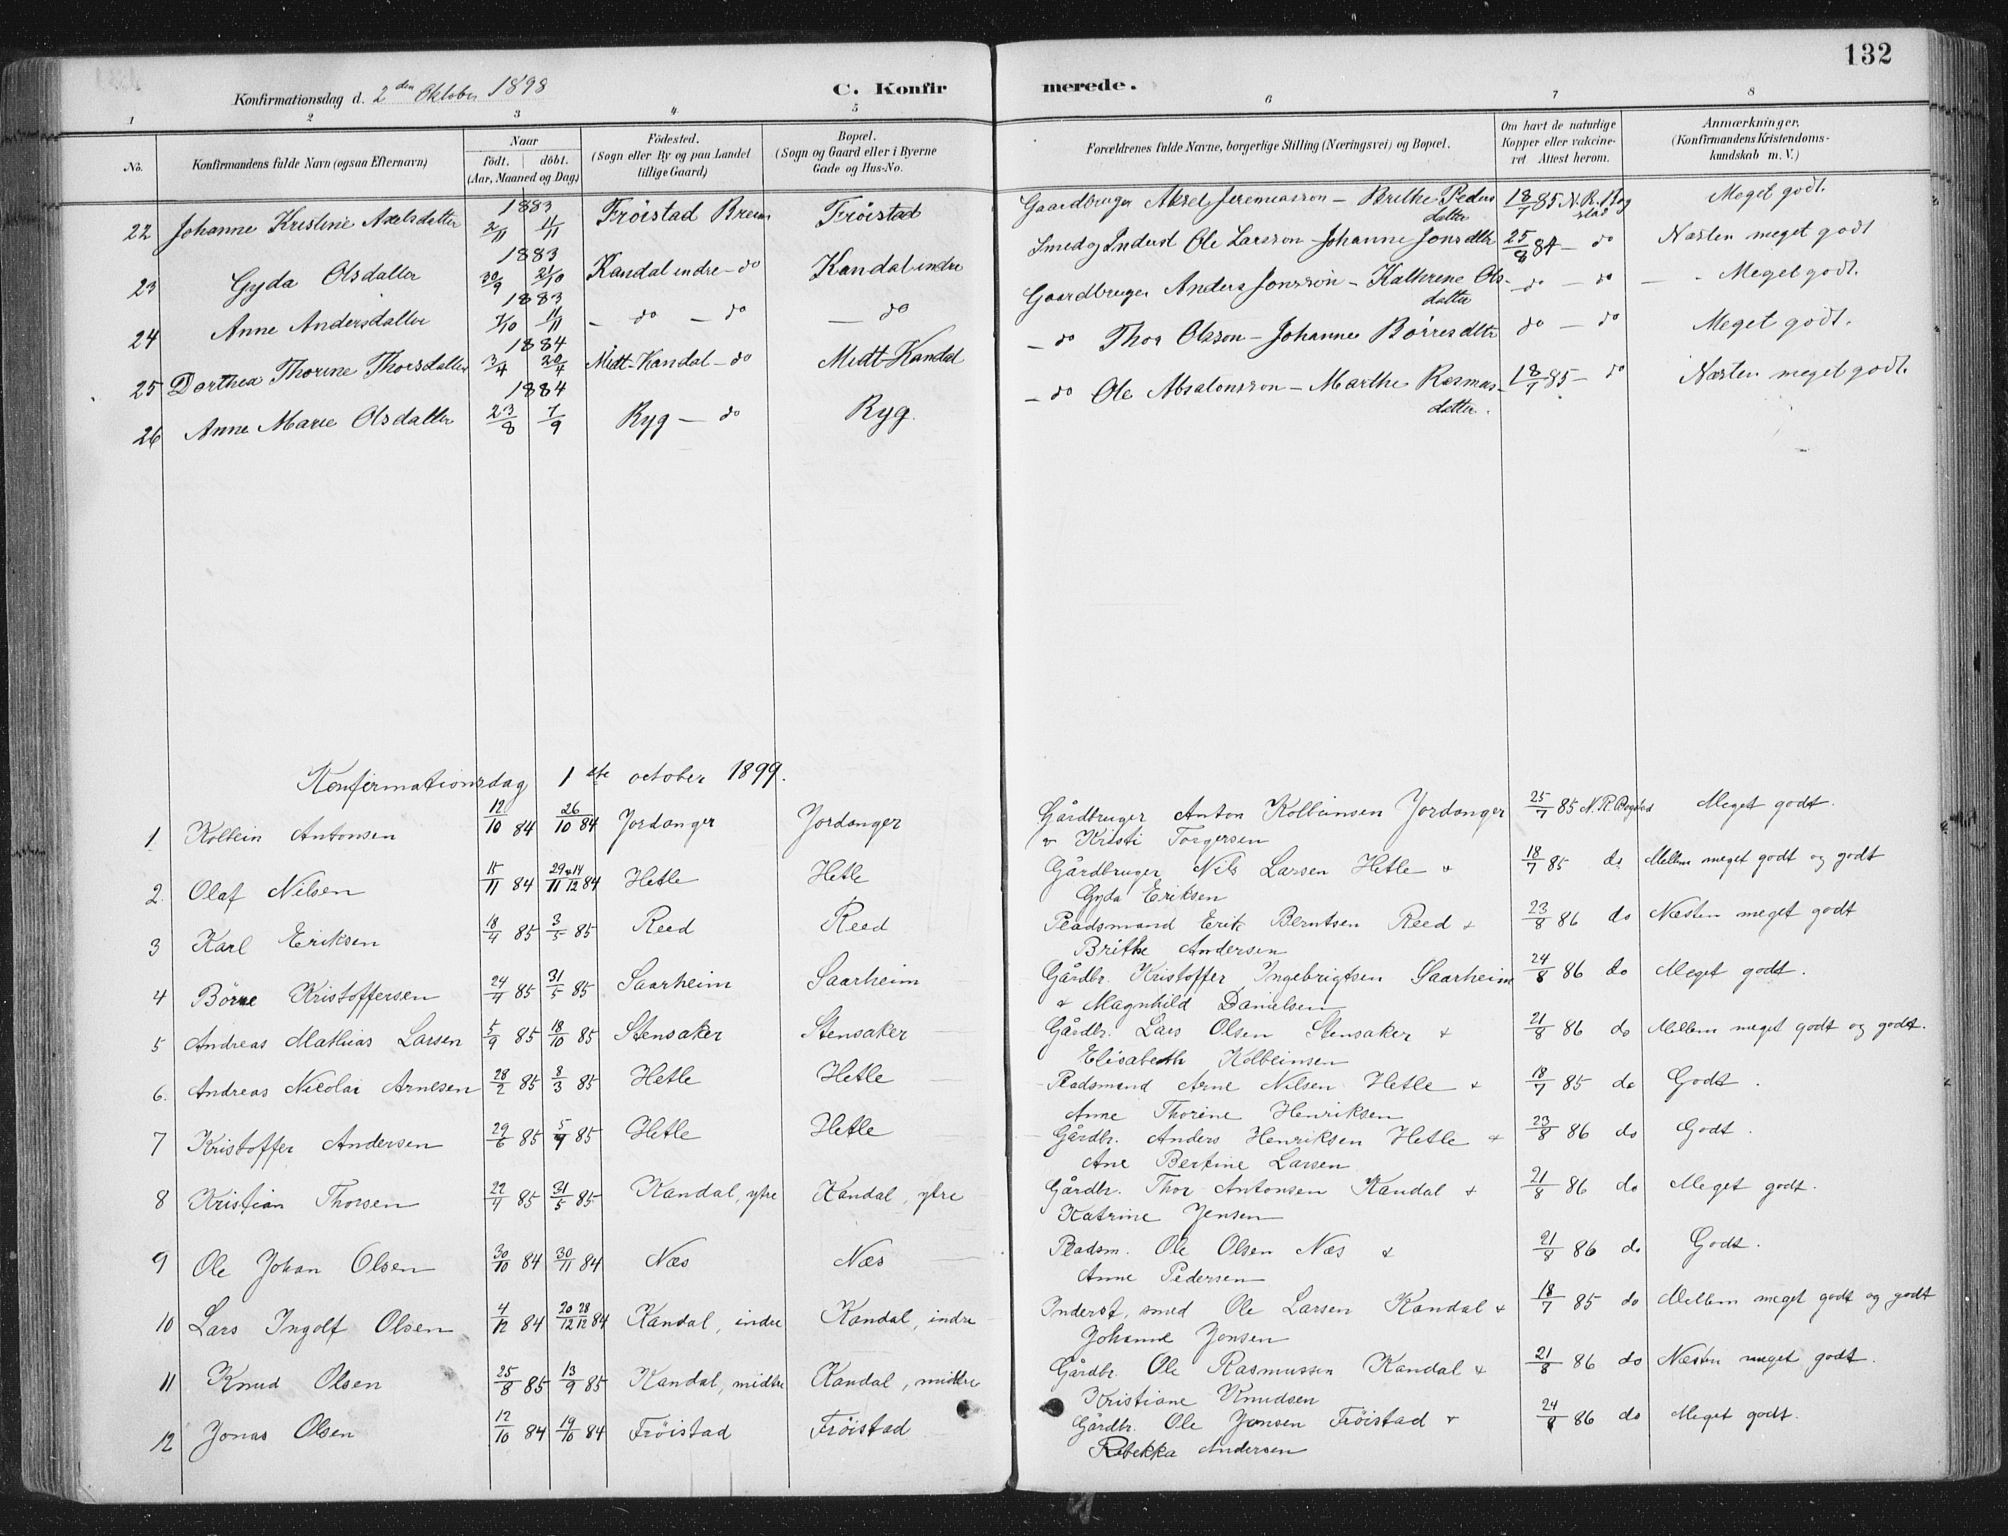 132
Konfirmationsdag d. 2den Oktober 1898 C. Konfirmerede.
1 2 3 4 5 6 7 8
No. Konfirmandens fulde Navn (ogsaa Efternavn) Naar födt. döbt. (Aar, Maaned og Dag) Födested. (Sogn eller By og paa Landet tillige Gaard) Bopæl. (Sogn og Gaard eller i Byerne Gade og Hus-No. Forældrenes fulde Navne, borgerlige Stilling (Næringsvei) og Bopæl. Om havt de naturlige Kopper eller vakcineret. Attest herom. Anmærkninger. (Konfirmandens Kristendomskundskab m. V.)
22 Johanne Kristine Axelsdatter 1883 2/11 11/11 Fröistad Breim Fröistad Gaardbruger Aksel Jeremiasson - Brithe Pedersdatter 18/7 85 N. R. Bogstad Meget godt.
23 Gyda Olsdatter 1883 30/9 21/10 Kandal indre - do Kandal indre Smed og Inderst Ole Larsson - Johanne Jonsdtr 25/8 84 - do Næsten meget godt
24 Anne Andersdatter 1883 7/10 11/11 - do - do - do Gaardbruger Anders Jonsson - Kathrine Olsdatter - do - do - Meget godt.
25 Dorthea Thorine Thorsdatter 1884 3/4 20/4 Midt-Kandal - do Midt-Kandal - do Thor Olsson - Johanne Börresdtr do - do Meget godt.
26 Anne Marie Olsdatter 1884 23/8 7/9 Ryg - do Ryg. - do Ole Absalonsson - Marthe Rasmusdatter. 18/7 85 - do Næsten meget godt.
Konfirmationsdag 1ste october 1899.
1. Kolbein Antonsen 12/10 84 26/10 84 Jordanger Jordanger Gårdbruger Anton Kolbeinsen Jordanger & Kristi Torgersen 25/7 85 N. R. Bogstad Meget godt.
2. Olaf Nilsen 15/11 84 29/11 & 14/12 84 Hetle Hetle Gårdbruger Nils Larsen Hetle & Gyda Eriksen 18/7 85 do Mellem meget godt og godt
3 Karl Eriksen 18/4 85 3/5 85 Reed Reed Pladsmand Erik Berntsen Reed & Brithe Andersen 23/8 86 do Næsten meget godt
4 Börre Kristoffersen 24/4 85 31/5 85 Saarheim Saarheim Gårdbr. Kristoffer Ingebrigtsen Saarheim & Magnhild Danielsen 24/8 86 do Meget godt.
5 Andreas Mathias Larsen 5/9 85 18/10 85 Stensaker Stensaker Gårdbr. Lars Olsen Stensaker & Elisabeth Kolbeinsen 21/8 86 do Mellem meget godt og godt.
6. Andreas Nicolai Arnesen 28/2 85 8/3 85 Hetle Hetle Pladsmand Arne Nilsen Hetle & Anne Thorine Henriksen 18/7 85 do Godt.
7 Kristoffer Andersen 29/6 85 5/7 85 Hetle Hetle Gårdbr. Anders Henriksen Hetle & Ane Bertine Larsen 23/8 86 do Godt.
8 Kristian Thorsen 22/4 85 31/5 85 Kandal, ytre Kandal, ytre Gårdbr. Thor Antonsen Kandal & Katrine Jensen 21/8 86 do Meget godt.
9 Ole Johan Olsen 30/10 84 30/11 84 Næs Næs Pladsm. Ole Olsen Næs & Anne Pedersen 21/8 86 do Godt.
10 Lars Ingolf Olsen 4/12 84 20/12 28/12 84 Kandal, indre Kandal, indre Inderst, smed Ole Larsen Kandal & Johanne Jonsen 18/7 85 do Mellem meget godt og godt
11 Knud Olsen 25/8 85 13/9 85 Kandal, midtre Kandal, midtre Gårdbr. Ole Rasmussen Kandal & Kristiane Knudsen 21/8 86 do Næsten meget godt.
12 Jonas Olsen 12/10 84 19/10 84 Fröistad Fröistad Gårdbr. Ole Jonsen Fröistad & Rebekka Andersen 24/8 86 do Meget godt.